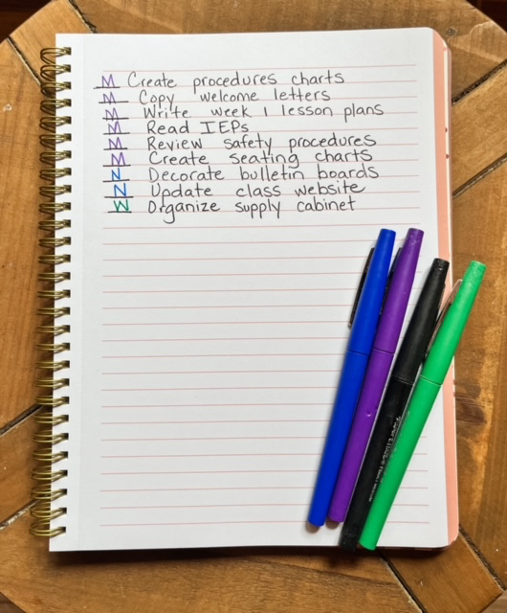 M Create procedures charts
M Copy welcome letters
M Write week 1 lesson plans
M Read IEPs
M Review safety procedures
M Create seating charts
N Decorate bulletin boards
N Update class website
W Organize supply cabinet